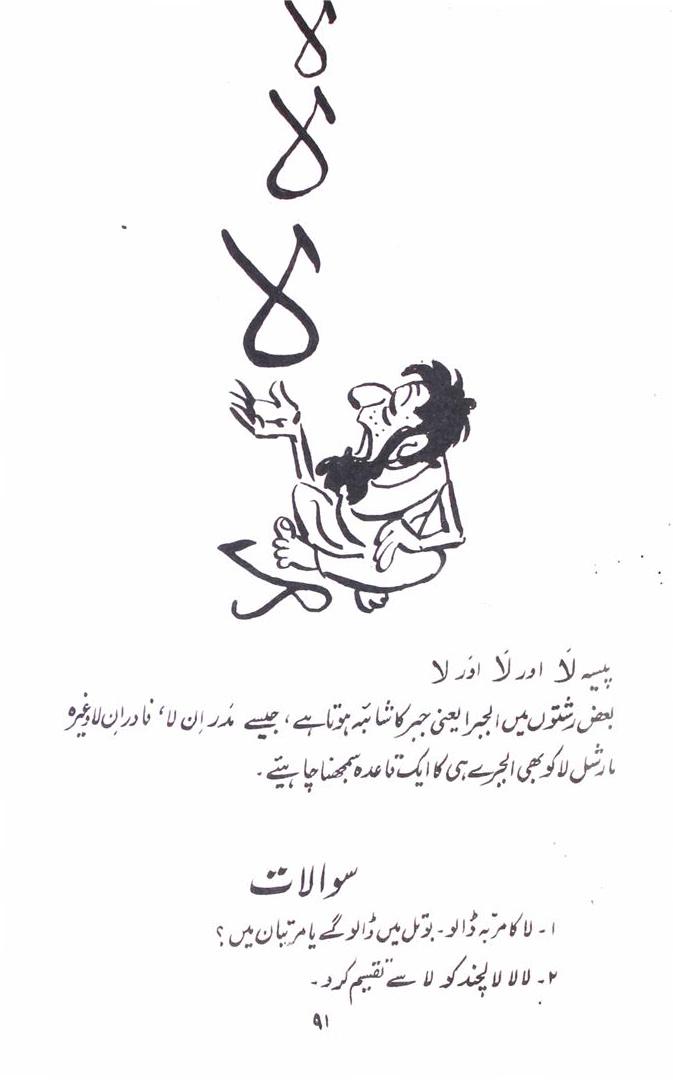 لا
لا
لا
لا
پیسہ لَا اور لَا اوَر لا
بعض رشتوں میں الجبرا یعنی جبر کا شائبہ ہوتا ہے، جیسے مدَر اِن لا، فادر اِن لا وغیرہ
مارشل لا کو بھی الجبرے ہی کا ایک قاعدہ سمجھنا چاہیئے۔
سوالات
۱۔ لا کا مربّہ ڈالو۔ بوتل میں ڈالو گے یا مرتبان میں؟
۲۔ لالا لا لچند کو لا سے تقسیم کرو۔
۹۱